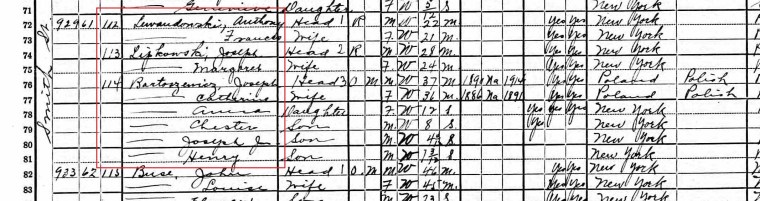 71 Genevieve Daughter F W S New York
72 923 61 112 Lewandowski, Anthony Head 1 R M W 22 M Yes Yes New York
73 Frances Wife F W 21 M Yes Yes New York
74 113 Lipkowski, Joseph Head 2 R M W 28 M Yes Yes New York
75 Margaret Wife F W 24 M Yes Yes New York
76 114 Bartoszewicz, Joseph Head 3 O M M W 37 M Na 1914 Yes Yes Poland Polish
77 Catherine Wife F W 36 M 1886 Na 1891 Yes Yes Poland Polish
78 Daughter F W 12 S Yes Yes Yes New York
79 Chester Son M W 8 S Yes New York
80 Joseph Jr Son M W S New York
81 Henry Son M W S New York
82 923 62 115 Buse, John Head 1 O M M W 46 M Yes Yes New York
83 Louise Wife F W 45 M Yes Yes New York
Son M W 23 S
Smith St